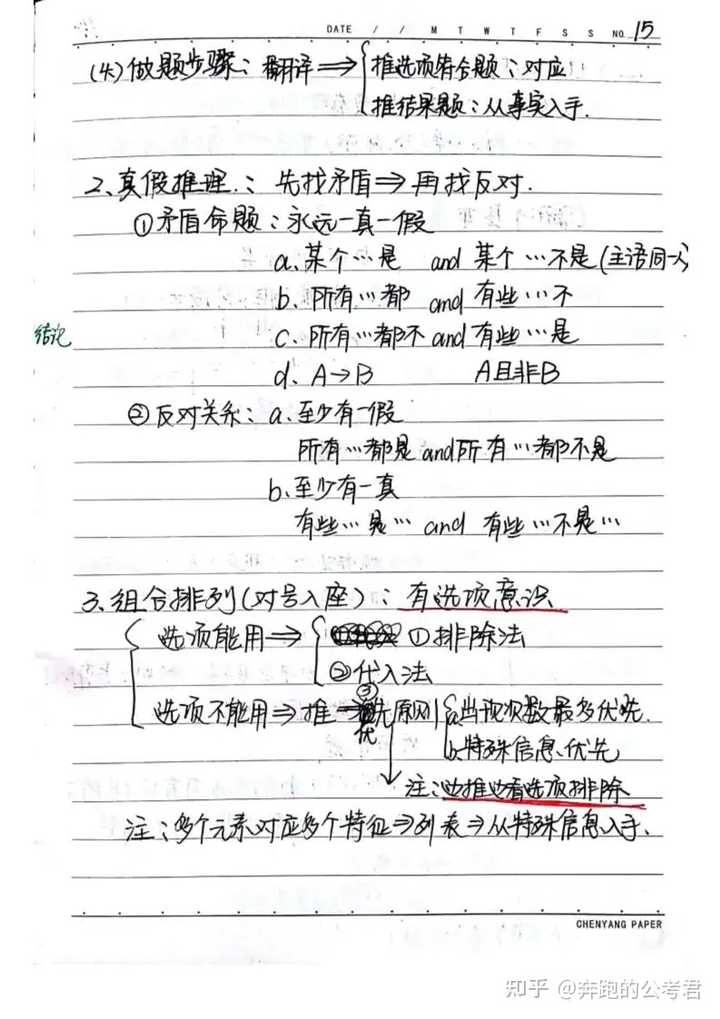 DATE / / M T W T F S S NO. 15
(4) 做题步骤：翻译⇒{推选项符合题：对应
推结果题：从事实入手.
2、真假推理：先找矛盾⇒再找反对.
①矛盾命题：永远一真一假
a、某个…是 and 某个…不是(主语同一)
b、所有…都 and 有些…不
结论
c、所有…都不 and 有些…是
d、A→B A且非B
②反对关系：a、至少有一假
所有…都是 and 所有…都不是
b、至少有一真
有些…是… and 有些…不是…
3、组合排列(对号入座)：有选项意识
选项能用⇒{ ①排除法
②代入法
选项不能用⇒推 ③优先原则{a、出现次数最多优先.
b、特殊信息优先
注：边推边看选项排除
注：多个元素对应多个特征⇒列表⇒从特殊信息入手.
CHENYANG PAPER
知乎 @奔跑的公考君